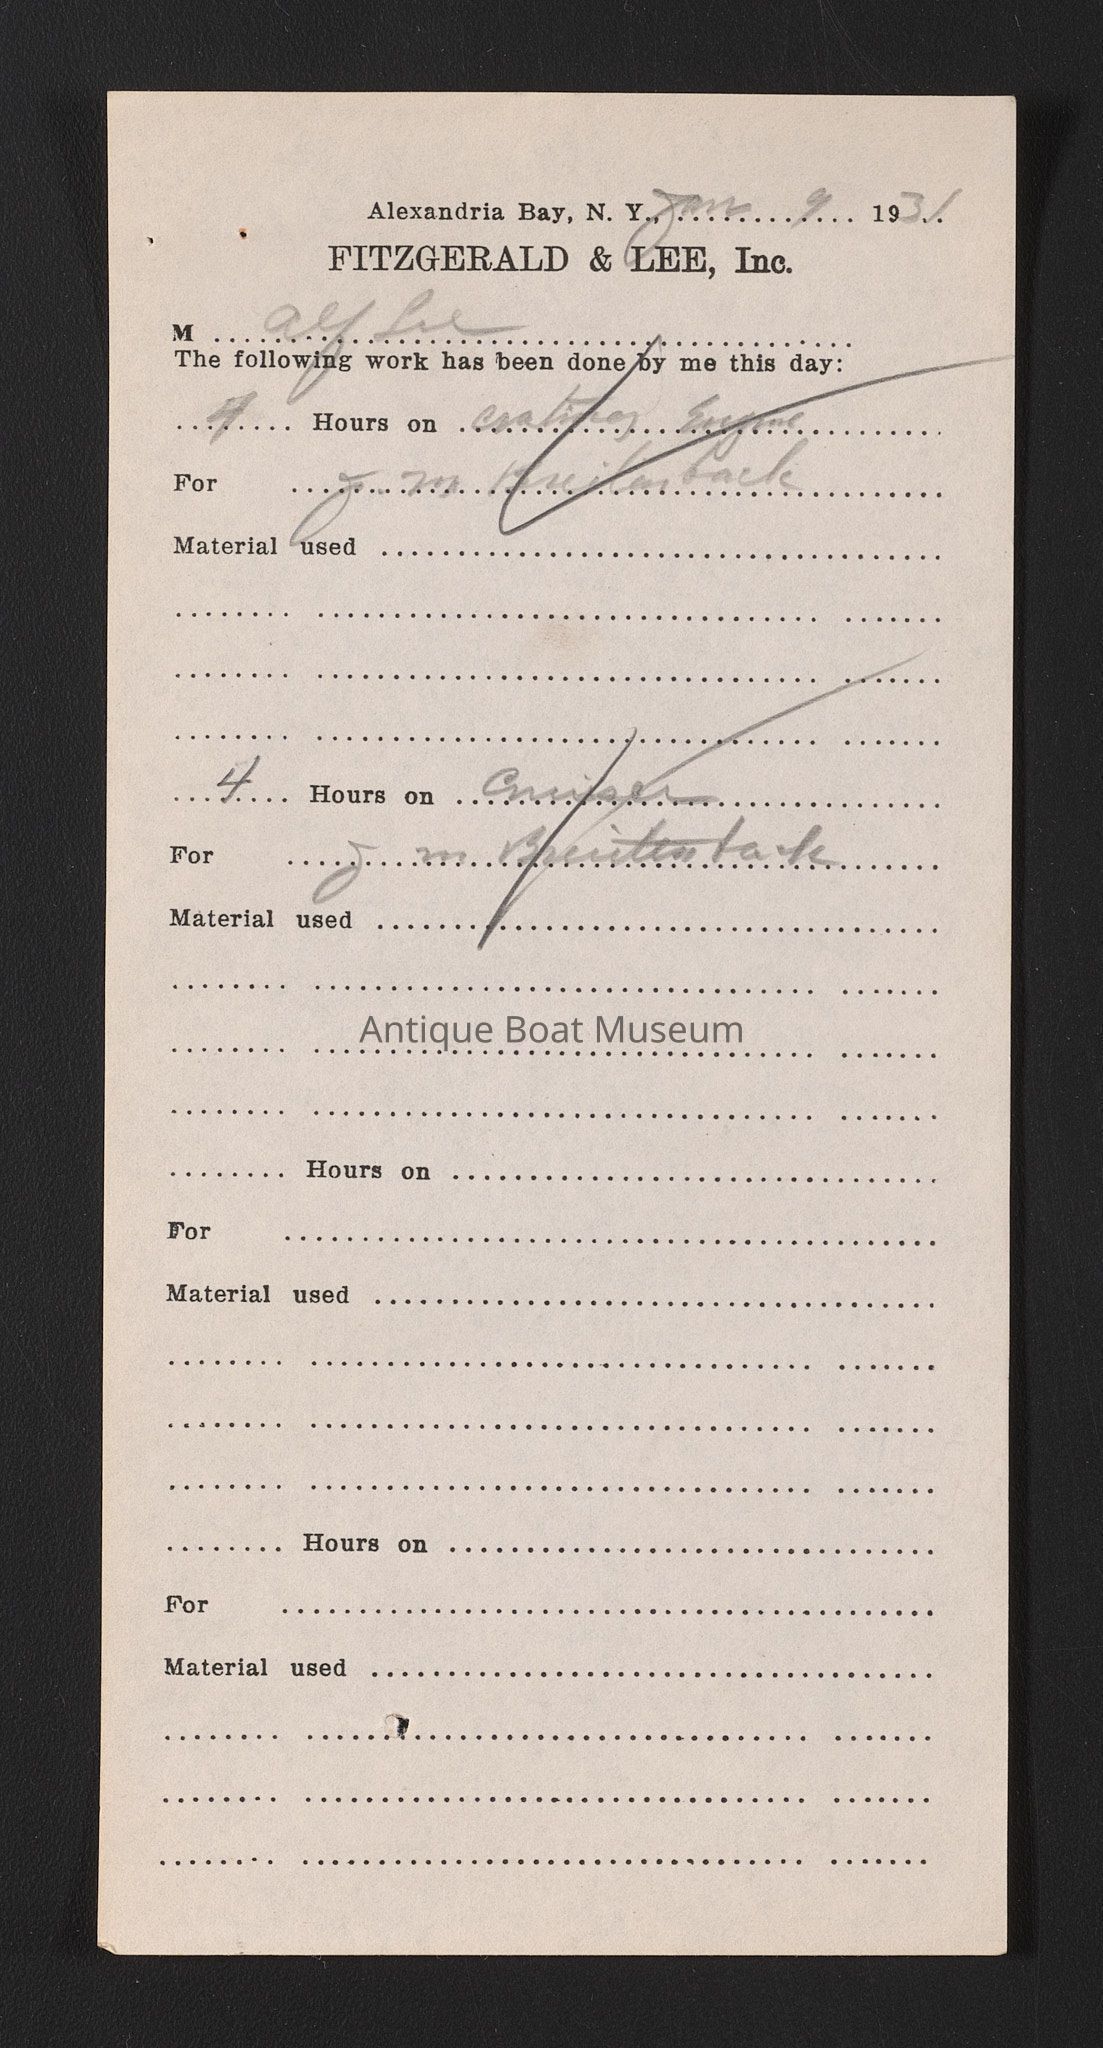 Alexandria Bay, N. Y., Jan 9 1931
FITZGERALD & LEE, Inc.
M Alf Lee
The following work has been done by me this day:
4 Hours on crating Engine
For J. M Breitenback
Material used
4 Hours on Cruiser
For J M Breitenback
Material used
Antique Boat Museum
Hours on
For
Material used
Hours on
For
Material used